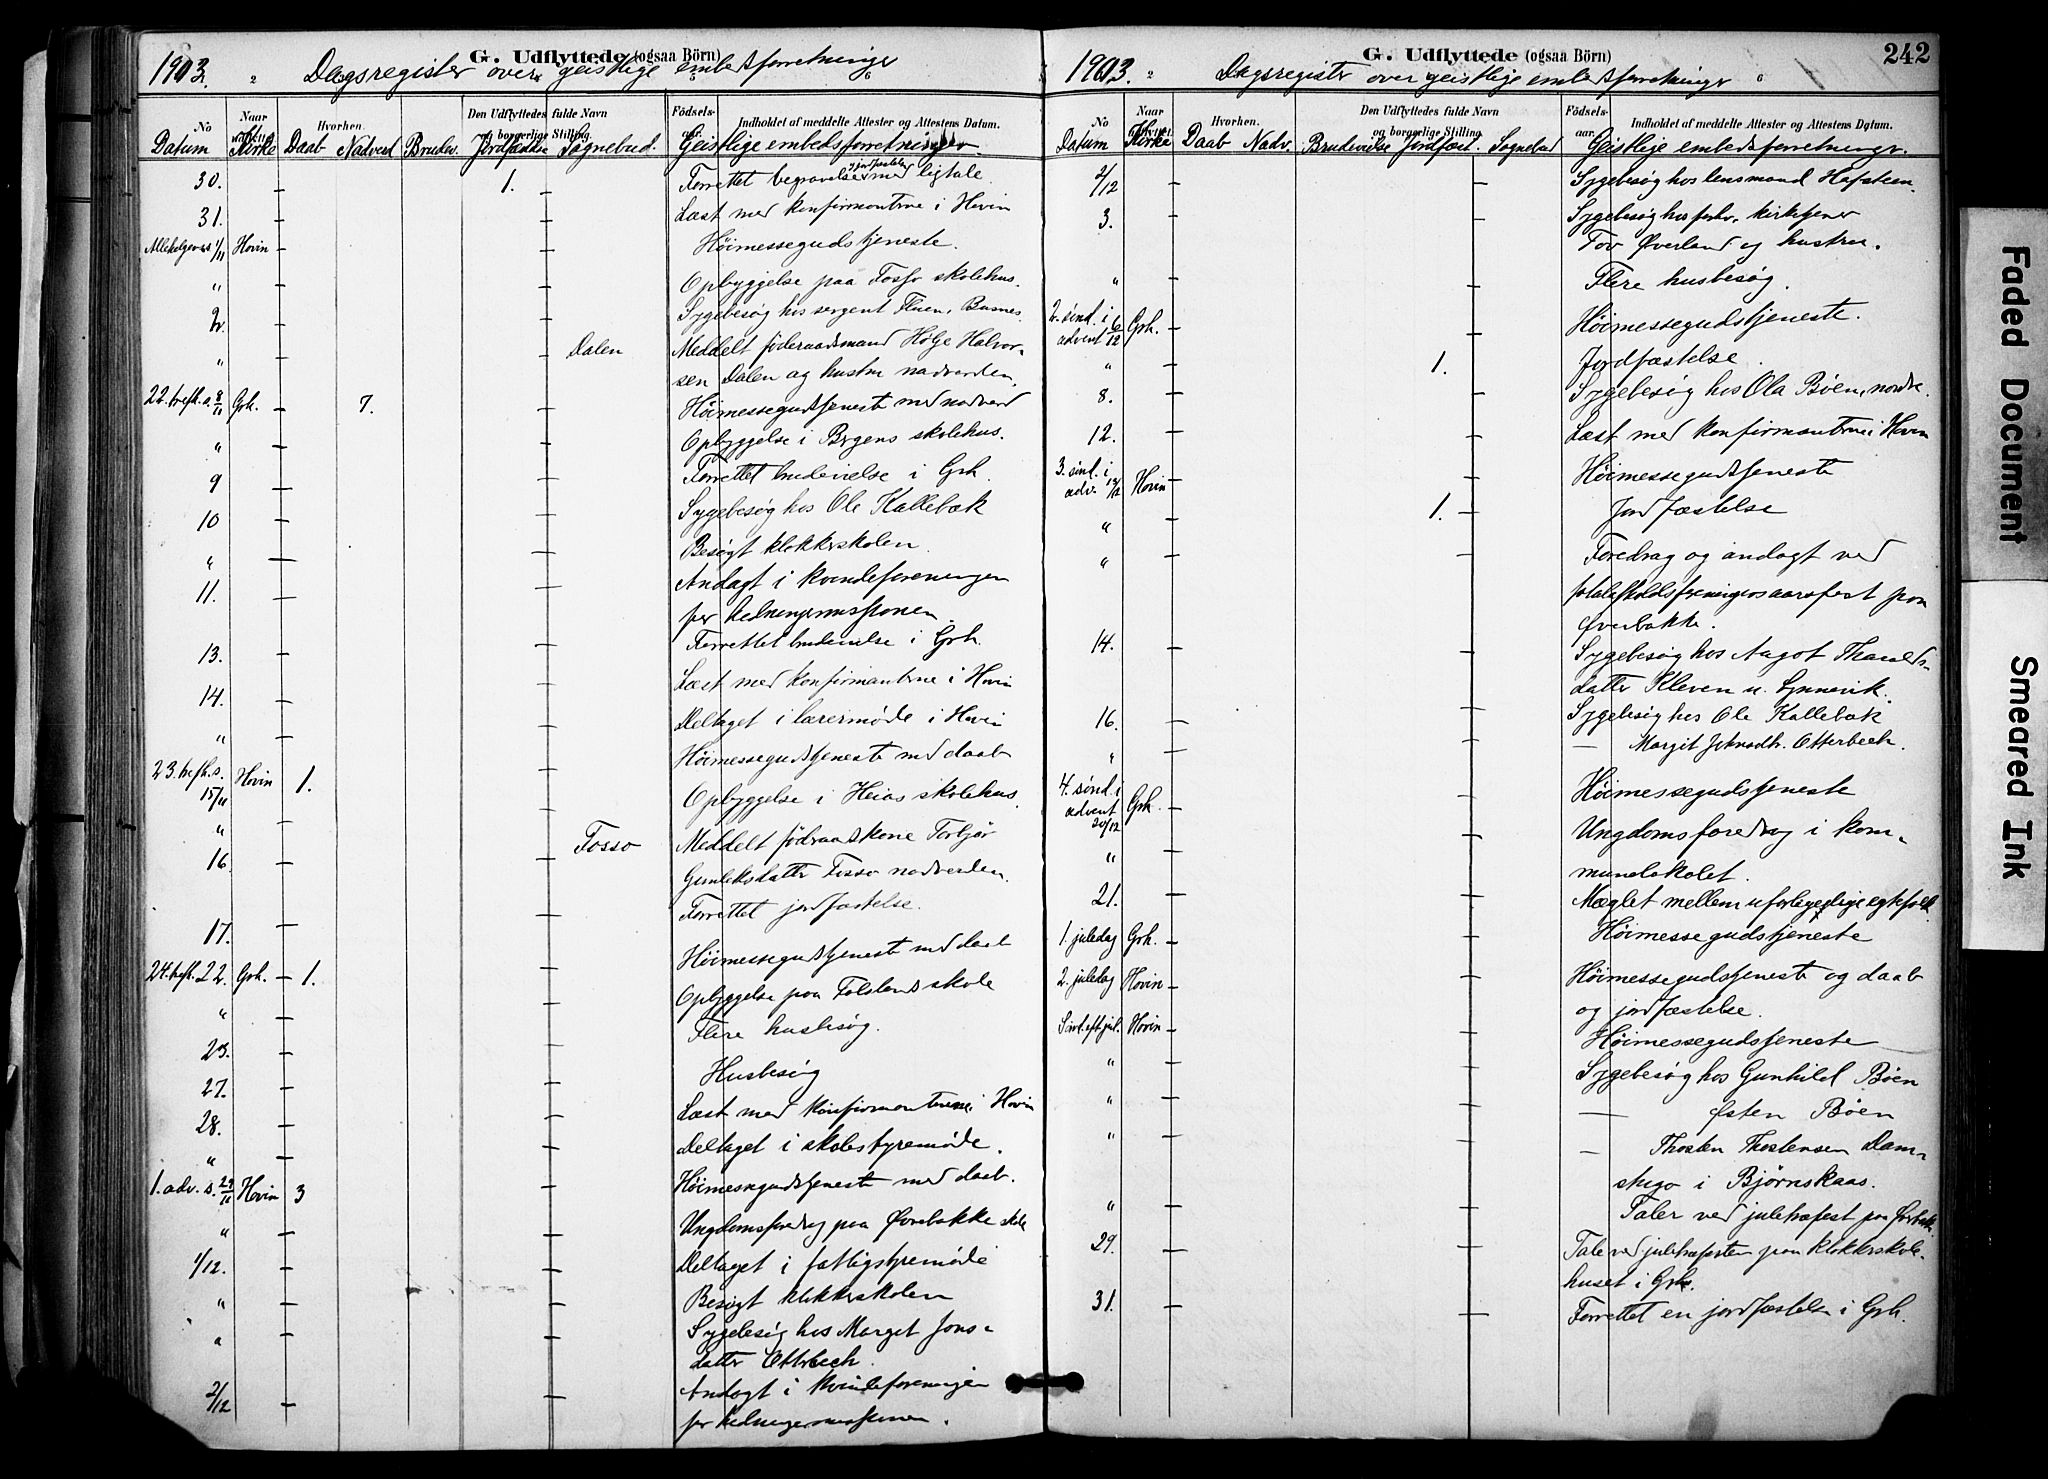 G. Udflyttede (ogsaa Börn)
1903. " Dagsregister over geistlige embedsforretninger "
No
Naar
Hvorhen.
Den Udflyttedes fulde Navn
og borgerlige Stilling.
Födsels-
aar.
Indholdet af meddelte Attester og Attestens Datum.
Datum Kirke Daab Nadverd Brudev. Jordfæstelse Sognebud. Geistlige embedsforretninger.
30. – 1. – Forrettet begravelse med ligtale.
31. – – Læst med konfirmanterne i Hovin
Allehelgensd. 1/11 Hovin – – Høimessegudstjeneste.
" – – Opbyggelse paa Fosso skolehus.
2. – – Sygebesøg hos sergent Fluen, Busnes.
" – Dalen Meddelt føderaadsmand Hølje Halvor-
sen Dalen og hustru nadverden.
22. trefh. s. 8/11 Grh. – 7. – Høimessegudstjeneste med nadverd
" – – Opbyggelse i Bøgens skolehus.
9 – – Forrettet brudevielse i Grh.
10 – – Sygebesøg hos Ole Kallebæk
" – – Besøgt klokkerskolen.
11. – – Andagt i kvindeforeningen
for hedningemissionen.
13. – – Forrettet brudevielse i Grh.
14. – – Læst med konfirmanterne i Hovin
" – – Deltaget i lærermøde i Hovin
23. trefh. s. 15/11 Hovin 1. – Høimessegudstjeneste med daab
" – – Opbyggelse i Heias skolehus.
16. – Fosso Meddelt føderaadskone Torbjør
Gunleksdatter Fosso nadverden.
17. – – Forrettet jordfæstelse.
24. trefh. 22. Grh. – 1. – Høimessegudstjeneste med daab
" – – Opbyggelse paa Folslands skole
23. – – Flere husbesøg.
27. – – Husbesøg
28. – – Læst med konfirmanterne i Hovin
" – – Deltaget i skolestyremøde.
1. adv. s. 29/11 Hovin 3 – Høimessegudstjeneste med daab.
" – – Ungdomsforedrag paa Øverbakke skole
1/12. – – Deltaget i fattigstyremøde
" – – Besøgt klokkerskolen
" – – Sygebesøg hos Marget Jons-
datter Otterbech.
2/12 – – Andagt i kvindeforeningen
for hedningemissionen.
G. Udflyttede (ogsaa Börn)
242
1903. " Dagsregister over geistlige embedsforretninger "
No
Naar
Hvorhen.
Den Udflyttedes fulde Navn
og borgerlige Stilling.
Födsels-
aar.
Indholdet af meddelte Attester og Attestens Datum.
Datum Kirke Daab Nadv. Brudevielse Jordfæst. Sognebud Geistlige embedsforretninger.
2/12 – – Sygebesøg hos lensmand Hafsteen.
3. – – Sygebesøg hos forhv. kirketjener
Tov Øverland og hustru.
" – – Flere husbesøg.
2. sønd. i advent 6/12 Grh. – – Høimessegudstjeneste.
" – 1. – Jordfæstelse.
8. – – Sygebesøg hos Ola Bøen, nordre.
12. – – Læst med konfirmanterne i Hovin
3. sønd. i adv. 13/12 Hovin – – Høimessegudstjeneste
" – 1. – Jordfæstelse
" – – Foredrag og andagt ved
totalafholdsforeningens aarsfest paa
Øverbakke.
14. – – Sygebesøg hos Aagot
datter Kleven
16. – – Sygebesøg hos Ole Kallebæk
" – – – Margit Otterbech.
4. sønd. i advent 20/12 Grh. – – Høimessegudstjeneste
" – – Ungdomsforedrag i kom-
munelokalet.
21. – – Mæglet mellem uforligelige egtefolk
1. juledag Grh. – – Høimessegudstjeneste
2. juledag Hovin – – Høimessegudstjeneste og daab
og jordfæstelse.
Sønd. eft. jul. Hovin – – Høimessegudstjeneste
" – – Sygebesøg hos Gunhild Bøen
" – – – Østen Bøen
" – – – Thosten Thostensen Dam-
stugo i Bjørnskaas.
" – – Taler ved juletræfest paa
29. – – Tale ved juletræfesten paa klokkerskole-
huset i Grh.
31. – – Forrettet en jordfæstelse i Grh.
Faded Document
Smeared Ink